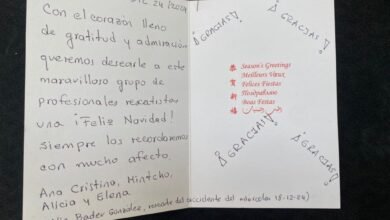 Dic 24/2024
Con el corazón lleno
de gratitud y admiración
queremos desearle a este
maravilloso grupo de
profesionales rexatistas
una ¡Feliz Navidad!
Siempre los recordaremos
con mucho afecto.
Ana Cristina,
Alicia y Elena
Bader González, rescate del accidente del miercoles 18-12-24)
¡GRACIAS!
¡GRACIAS!
恭賀新禧
Season's Greetings
Meilleurs Vœux
Felices Fiestas
Поздравляю
Boas Festas
¡GRACIAS!
¡GRACIAS!